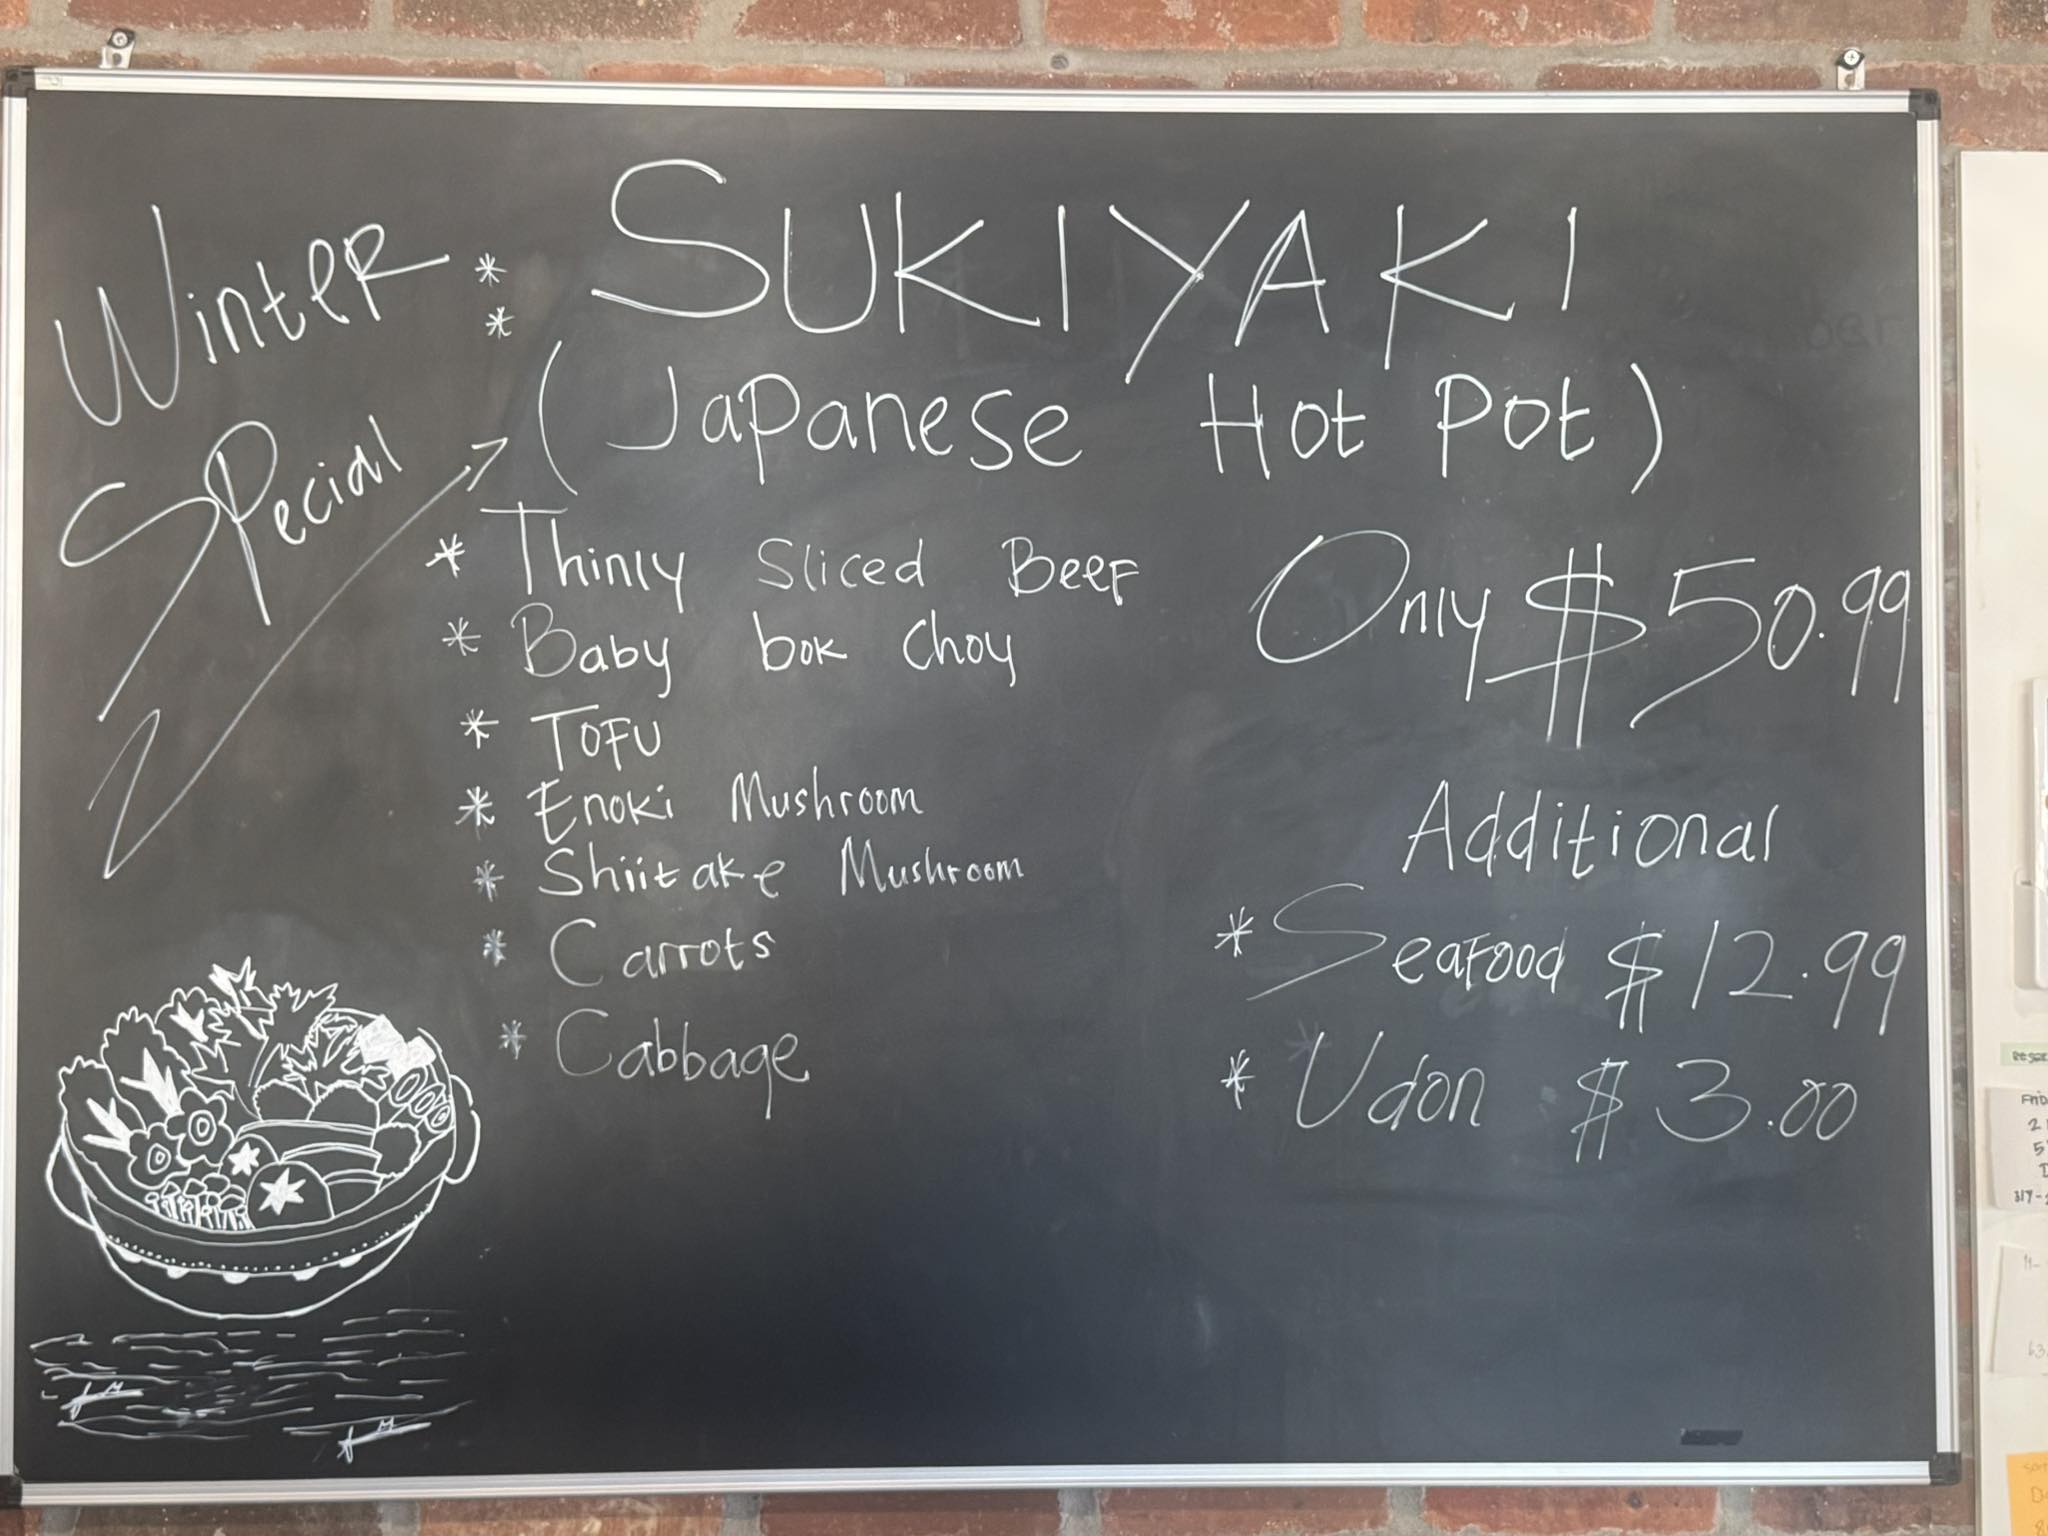 Winter
Special
SUKIYAKI
(Japanese Hot Pot)
* Thinly Sliced Beef
* Baby bok choy
* TOFU
* Enoki Mushroom
* Shiitake Mushroom
* Carrots
* Cabbage
Only $50.99
Additional
* Seafood $12.99
* Udon $3.00